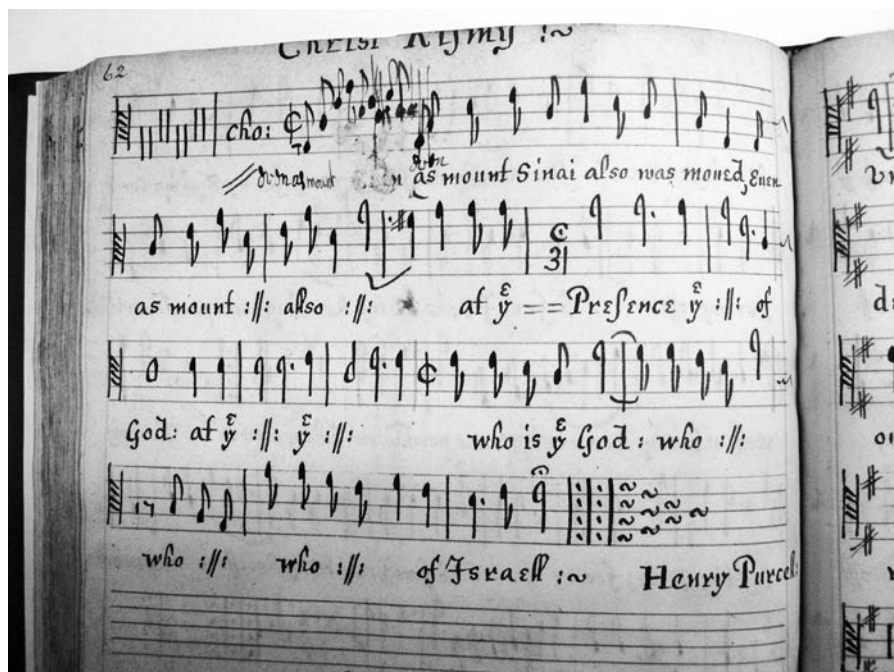 62
cho:
as mount Sinai also was moved, Euen
as mount :||: also :||: at yͤ == Presence yͤ :||: of
God: at yͤ :||: yͤ :||: who is yͤ God: who :||:
who :||: who :||: of Israell :~ Henry Purcel: